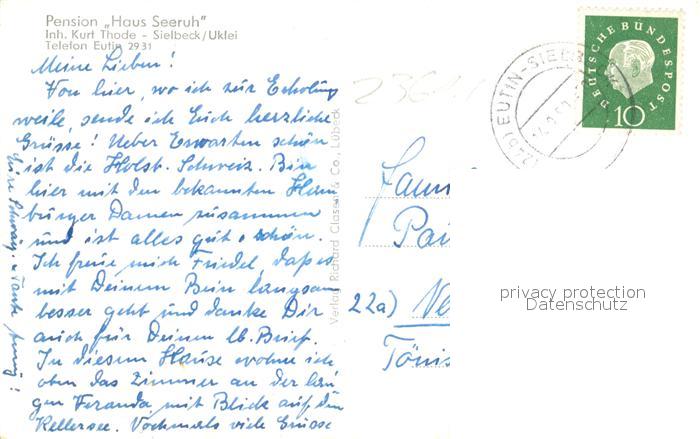 Pension „Haus Seeruh"
Inh. Kurt Thode - Sielbeck/Uklei
Telefon Eutin 2931
Meine Lieben!
Von hier, wo ich zur Erholung
weile, sende ich Euch herzliche
Grüsse! Ueber Erwarten schön
ist die Holst. Schweiz. Bin
hier mit den bekannten Ham
burger Damen zusammen
und ist alles gut u. schön.
Ich freue mich Friedel, dass es
mit Deinem Bein langsam
besser geht und danke Dir
auch für Deinen lb. Brief.
In diesem Hause wohne ich
oben das Zimmer an der lan
gen Veranda, mit Blick auf den
Kellersee. Nochmals viele Grüsse
Eure Schwäg. u. Tante
Verlag Richard Classen & Co., Lübeck
DEUTSCHE BUNDESPOST
10
(24b) EUTIN-SIELB
Fam
Pau
22a) Ve
Tönis
privacy protection
Datenschutz